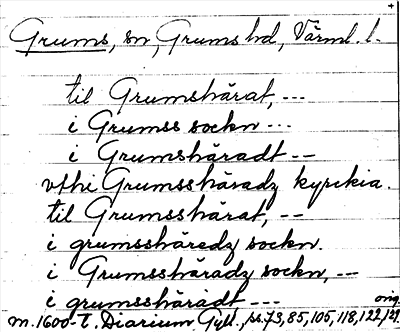 Grums, sn, Grums hd, Värml. l.
til Grumshärat, ---
i Grumss sockn ---
i Grumshäradt --
vthi Grumsshäradz kyrckia.
til Grumsshärat, --
i grumsshäredz sockn.
i Grumsshäradz sockn, --
i grumsshäradt ---
orig.
m. 1600-t. Diarium Gyll., ss. 73, 85, 105, 118, 122, 127